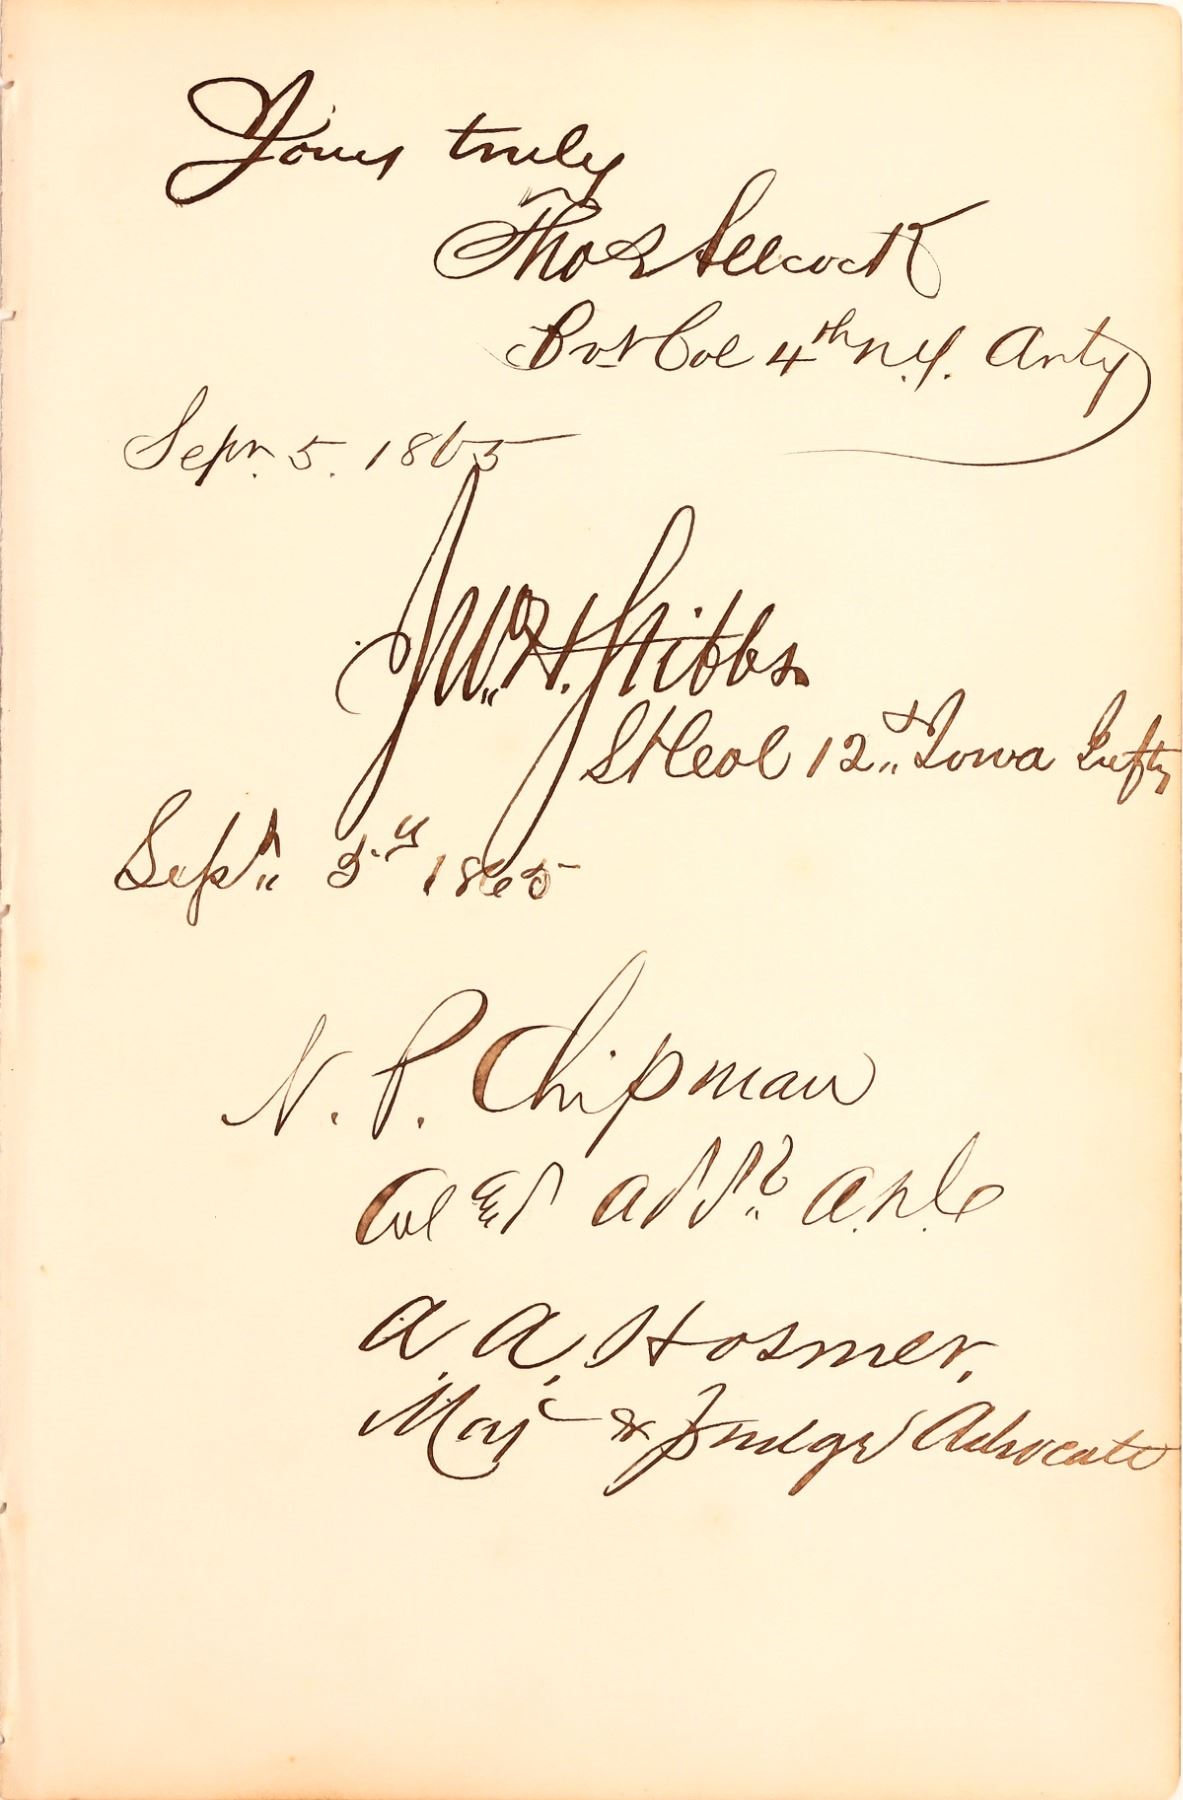 Yours truly
Thos Allcock
Bvt Col 4th N.Y. Arty
Sepr. 5. 1865
Jno. H. Stibbs
Lt Col 12th Iowa Infty
Sept. 5th 1865
N. P. Chipman
Col and Addl A.D.C
A. A. Hosmer,
Maj & Judge Advocate